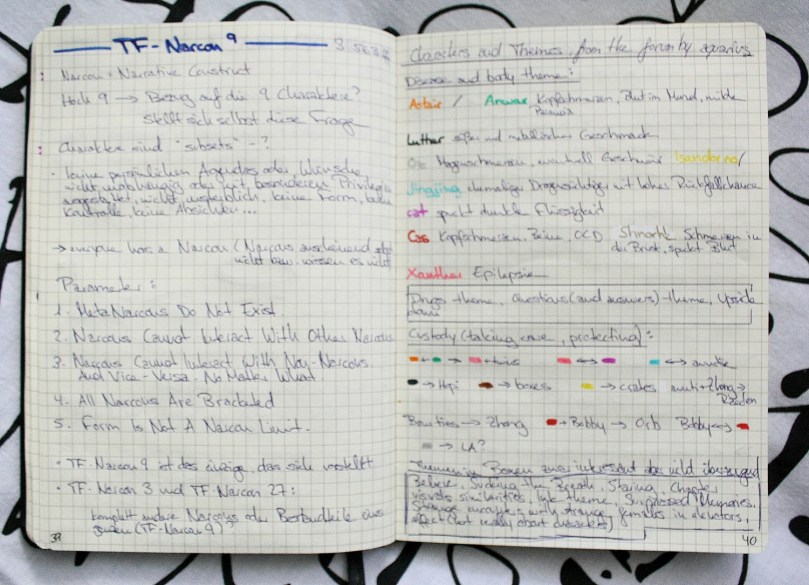 TF-Narcon 9
Narcon = Narrative Construct
Hoch 9 → Bezug auf die 9 Charaktere?
stellt sich selbst diese Frage
Charaktere sind "subsets" - ?
· keine persönlichen Agendas oder Wünsche
nicht unabhängig oder mit besonderen Privilegien
ausgestattet, nicht unsterblich, keine Form, keine
Kontrolle, keine Absichten...
→ everyone has a Narcon (Narcons anscheinend
nicht bzw. wissen es nicht
Parameter:
1. MetaNarcons Do Not Exist.
2. Narcons Cannot Interact With Other Narcons
3. Narcons Cannot Interact With Non-Narcons.
And Vice-Versa. No Matter What
4. All Narcons Are Bracketed
5. Form Is Not A Narcon Limit.
· TF-Narcon 9 ist das einzige, das sich vorstellt
· TF-Narcon 3 und TF-Narcon 27:
komplett andere Narcons oder Bestandteile des
(TF-Narcon 9)?
39
Characters and Themes, from the forum by aquarius
Disease and body theme:
Astair / Anwar Kopfschmerzen, Blut im Mund, milde
Paranoia
Luther süßer und metallischer Geschmack
Oz Magenschmerzen, Geschwür Isandòrno/
Jingjing ehemalige Drogensüchtige mit hoher Rückfallchance
cat spuckt dunkle Flüssigkeit
Cas Kopfschmerzen, Beine, OCD Shnorhk Schmerzen in
der Brust, spuckt Blut
Xanther Epilepsie
Drugs-theme, Questions (and answers)-theme, Upside
down
Custody (taking care, protecting):
+ → + twins ↔ ↔
→ Hopi → boxes → crates →
Bounties → Zhong + Bobby → Orb Bobby ↔
→ LA?
Believe, Stealing the Breath, Staring, Chaotic,
visuals similarities, Surpressed Memories,
Strange encounters with strange females in elevators,
40